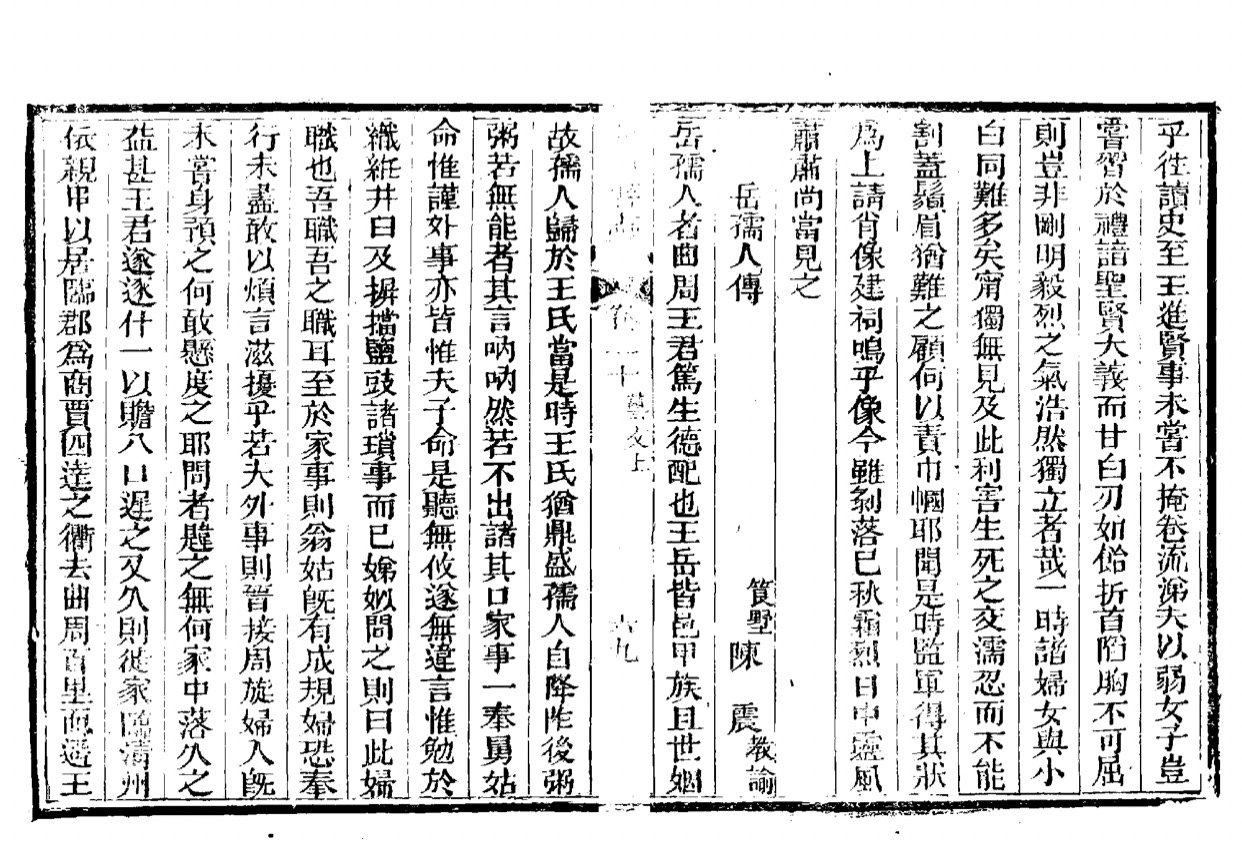 乎往讀史至王進賢事未嘗不掩卷流涕夫以弱女子豈
嘗習於禮諳聖賢大義而甘白刃如飴折首陷胸不可屈
則豈非剛明毅烈之氣浩然獨立者哉一時諸婦女與小
白同難多矣甯獨無見及此利害生死之交濡忍而不能
割蓋鬚眉猶難之顧何以責巾幗耶聞是時監軍得其狀
爲上請肖像建祠嗚乎像今雖剝落已秋霜烈日中靈風
肅肅尚當見之
岳孺人傳
筫墅陳震教諭
岳孺人者曲周王君篤生德配也王岳皆邑甲族且世姻
卷二十 藝文上
六九
故孺人歸於王氏當是時王氏猶鼎盛孺人自降阼後粥
粥若無能者其言吶吶然若不出諸其口家事一奉舅姑
命惟謹外事亦皆惟夫子命是聽無攸遂無違言惟勉於
織絍井臼及摒擋鹽豉諸瑣事而已娣姒問之則曰此婦
職也吾職吾之職耳至於家事則翁姑旣有成規婦恐奉
行未盡敢以煩言滋擾乎若大外事則晉接周旋婦人旣
未嘗身預之何敢懸度之耶問者韙之無何家中落久之
益甚王君遂逐什一以贍八口遲之又久則徙家臨清州
依親串以居臨郡爲商賈四達之衢去曲周百里而遙王